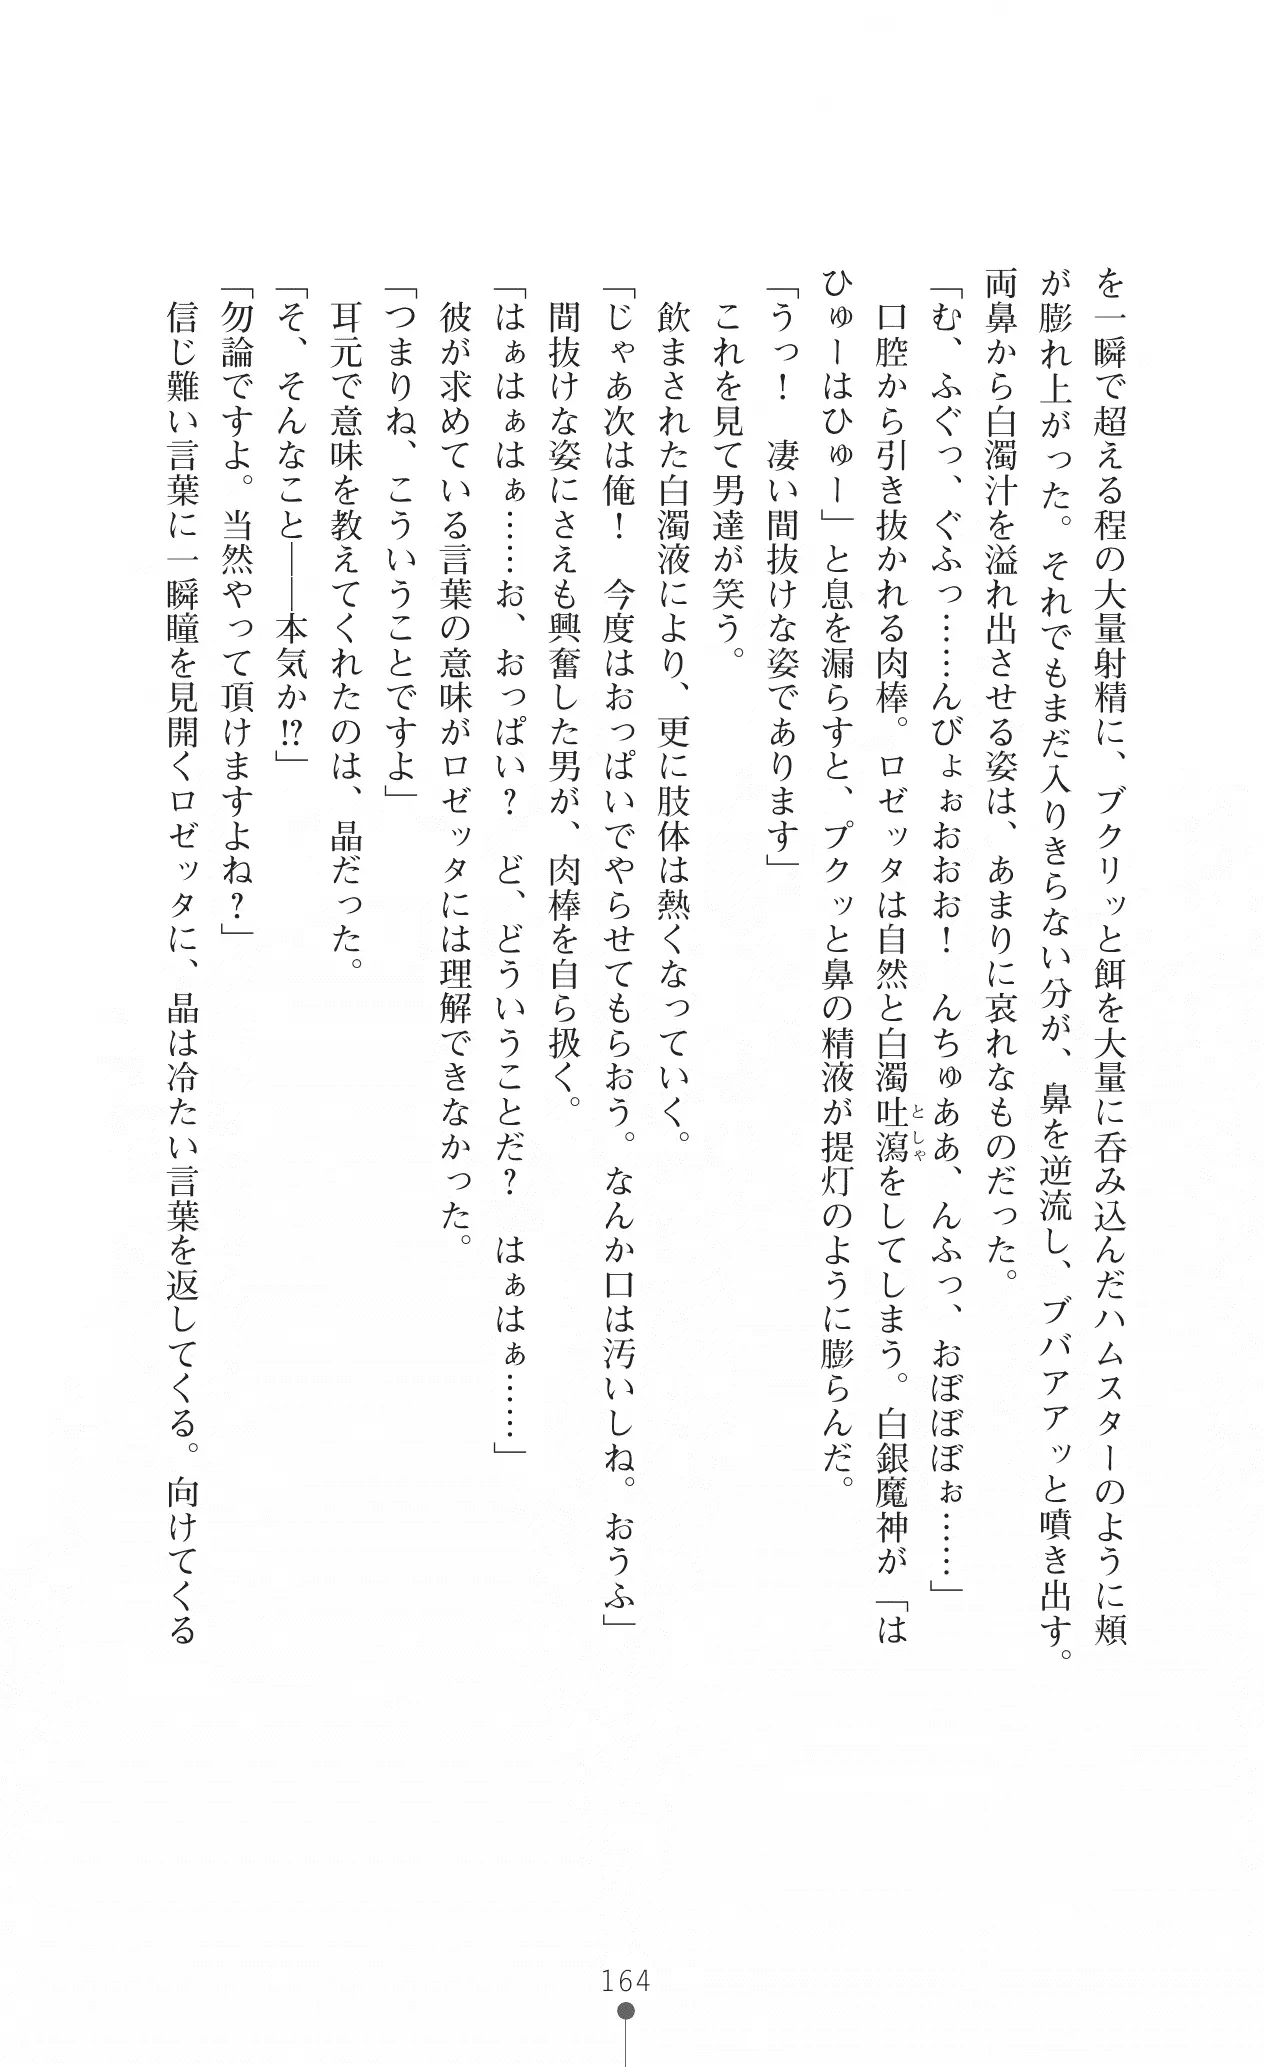 を一瞬で超える程の大量射精に、ブクリッと餌を大量に呑み込んだハムスターのように頬
が膨れ上がった。それでもまだ入りきらない分が、鼻を逆流し、ブバアアッと噴き出す。
両鼻から白濁汁を溢れ出させる姿は、あまりに哀れなものだった。
「む、ふぐっ、ぐふっ……んびょぉおおお！　んちゅああ、んふっ、おぼぼぼぉ……」
　口腔から引き抜かれる肉棒。ロゼッタは自然と白濁吐瀉をしてしまう。白銀魔神が「は
としゃ
ひゅーはひゅー」と息を漏らすと、プクッと鼻の精液が提灯のように膨らんだ。
「うっ！　凄い間抜けな姿であります」
　これを見て男達が笑う。
　飲まされた白濁液により、更に肢体は熱くなっていく。
「じゃあ次は俺！　今度はおっぱいでやらせてもらおう。なんか口は汚いしね。おうふ」
　間抜けな姿にさえも興奮した男が、肉棒を自ら扱く。
「はぁはぁはぁ……お、おっぱい？　ど、どういうことだ？　はぁはぁ……」
　彼が求めている言葉の意味がロゼッタには理解できなかった。
「つまりね、こういうことですよ」
　耳元で意味を教えてくれたのは、晶だった。
「そ、そんなこと――本気か!?」
「勿論ですよ。当然やって頂けますよね？」
　信じ難い言葉に一瞬瞳を見開くロゼッタに、晶は冷たい言葉を返してくる。向けてくる
164